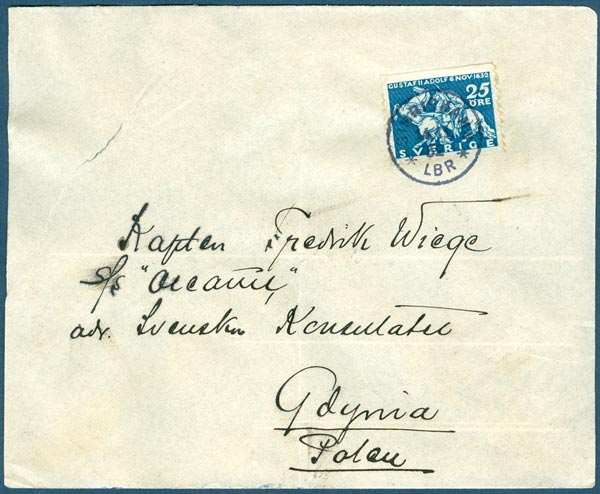 GUSTAF II ADOLF 6 NOV. 1632
25
ÖRE
SVERIGE
LBR
Kapten Fredrik Wiege
s/s "
adr. Svenska Konsulatet
Gdynia
Polen